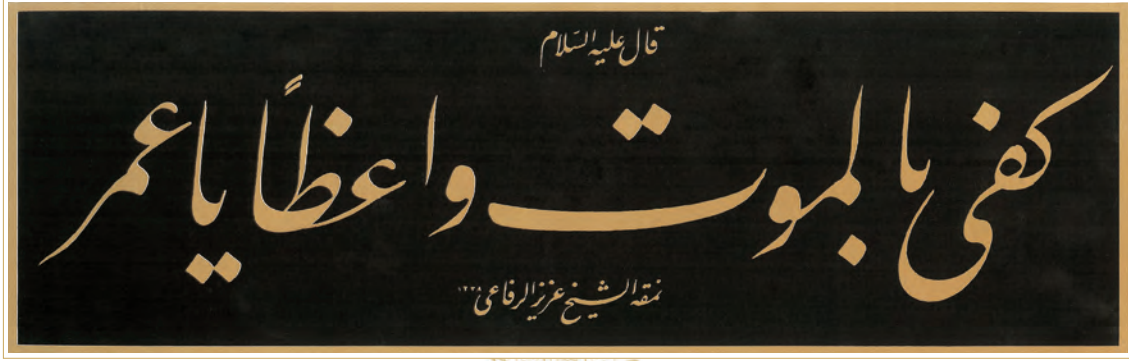 قال عليه السّلام
كفى بالموت واعظاً يا عمر
نمقه الشيخ عزيز الرفاعي ١٣٣٨